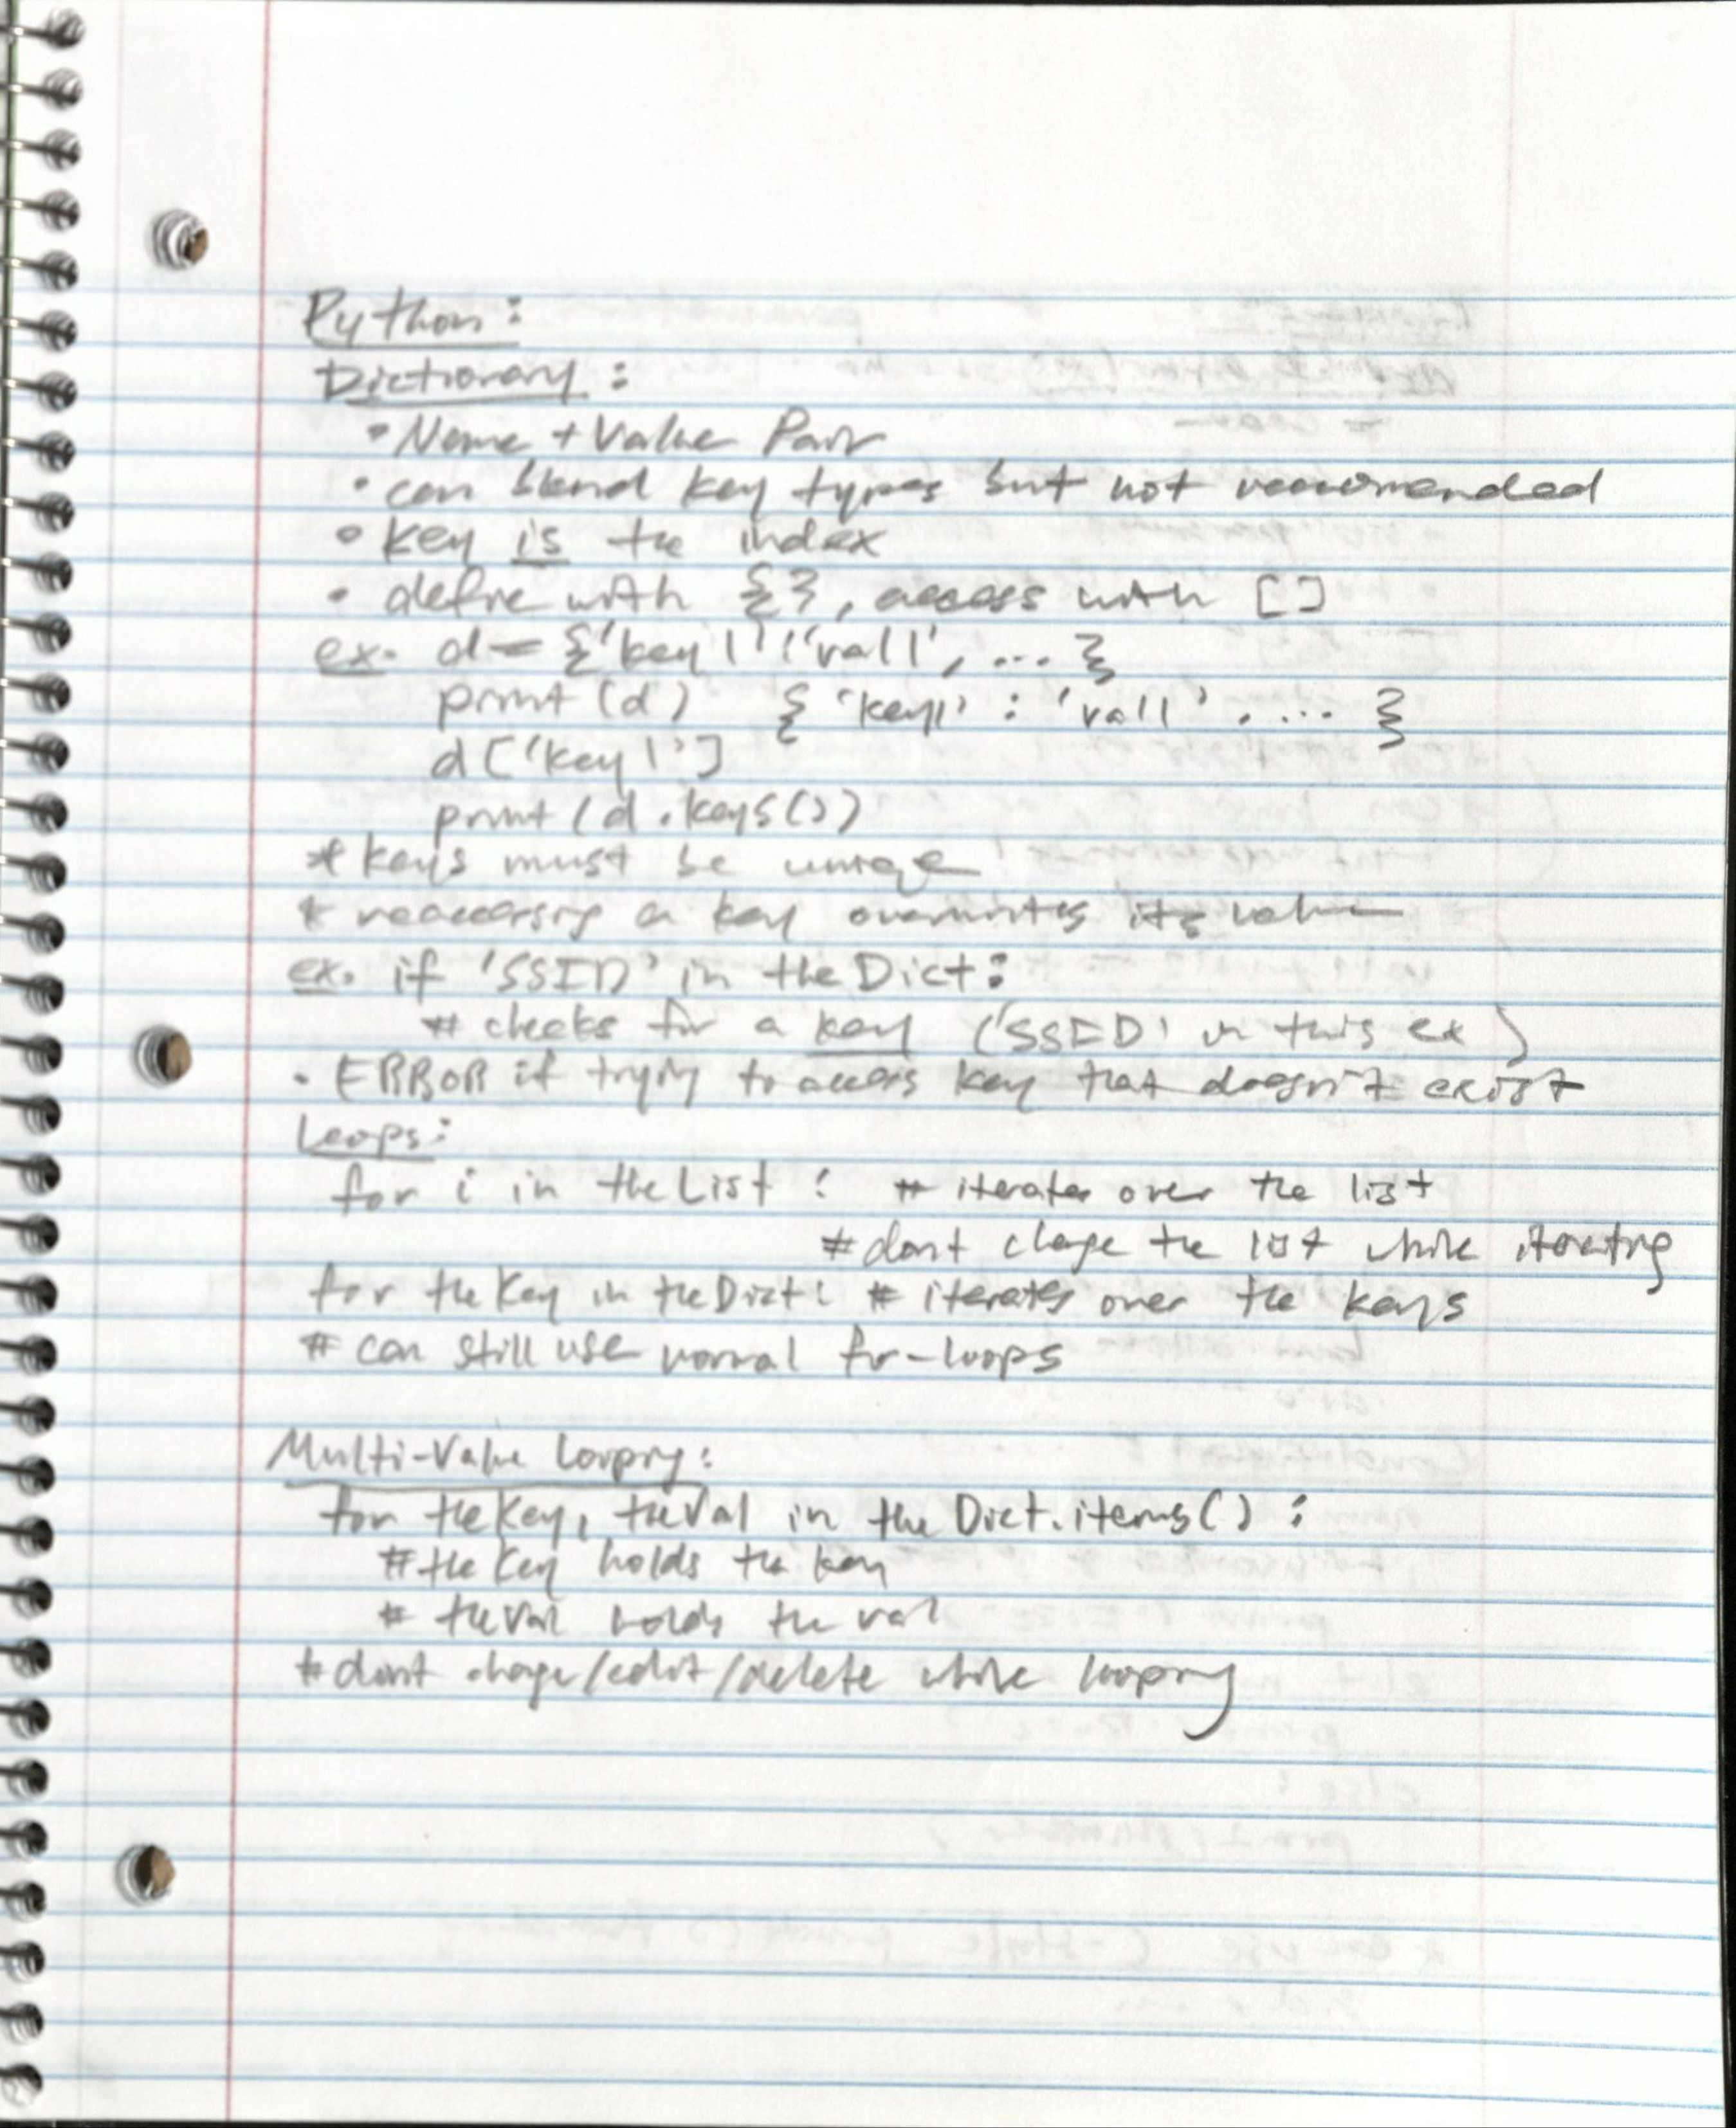 Python:
Dictionary:
• Name + Value Pair
• can blend key types but not recommended
• key is the index
• define with {}, access with []
ex. d = {'key1':'val1', ... }
print(d) { 'key1' : 'val1' , ... }
d['key1']
print(d.keys())
* keys must be unique
* reaccessing a key overwrites its value
ex. if 'SSID' in theDict:
# checks for a key ('SSID' in this ex)
• ERROR if trying to access key that doesn't exist
Loops:
for i in theList : # iterates over the list
# dont change the list while iterating
for theKey in theDict: # iterates over the keys
# can still use normal for-loops
Multi-Value Looping:
for theKey, theVal in theDict.items() :
# theKey holds the key
# theVal holds the val
* dont change/edit/delete while looping